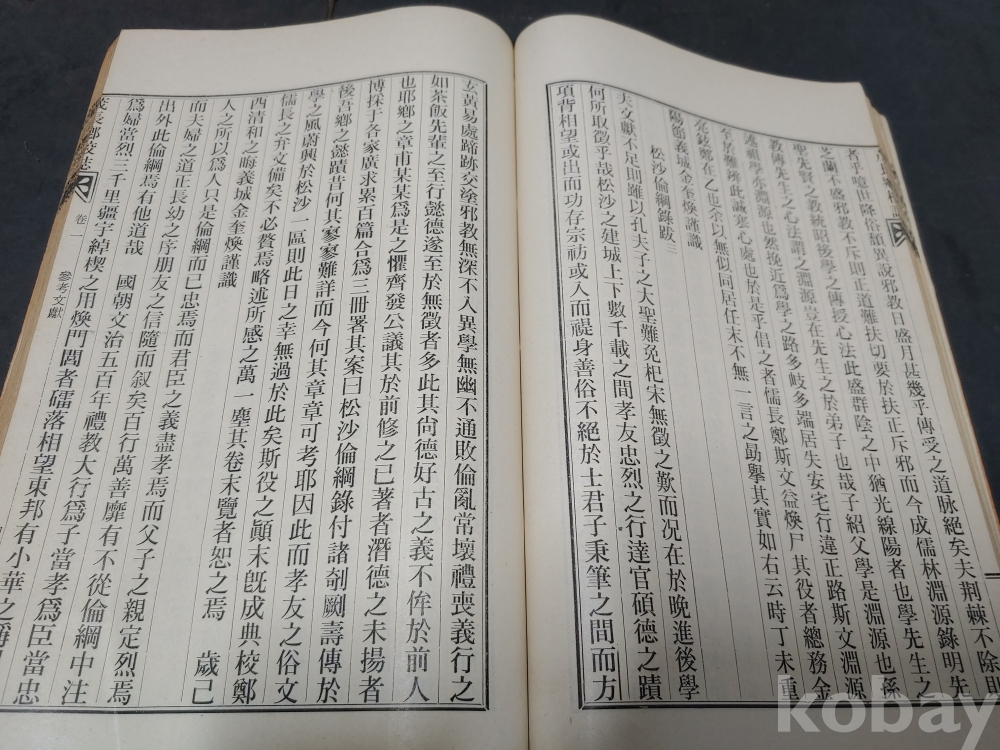 芝蘭不盛邪教不斥則正道難扶切要於扶正斥邪而今成儒林淵源錄明先
聖先賢之教統昭後學之傳授心法此盛群陰之中猶光線陽者也學先生之
教先生之心法謂之淵源豈在先生之於弟子也哉子紹父學是淵源也孫
述祖學亦淵源也然挽近爲學之路多岐多端居失安宅行違正路斯文淵源
至於難雜此誠寒心處也於是乎倡之者儒長鄭斯文益煥尸其役者總務金
乙也余以無似同居任末不無一言之助擧其實如右云時丁未重
陽節義城金奎煥謹識
松沙倫綱錄跋
夫文獻不足則雖以孔夫子之大聖難免杞宋無徵之歎而況在於晚進後學
何所取徵乎哉松沙之建城上下數千載之間孝友忠烈之行達官碩德之蹟
項背相望或出而功存宗祊或入而禔身善俗不絕於士君子秉筆之間而方
玄黃易處蹄跡交塗邪教無深不入異學無幽不通敗倫亂常壞禮喪義行之
如茶飯先輩之至行懿德遂至於無徵者多此其尙德好古之義不侔於前人
也耶鄉之章甫某某爲是之懼齊發公議其於前修之已著者潛德之未揚者
博採于各家廣求累百篇合爲三冊署其案曰松沙倫綱錄付諸剞劂壽傳於
後吾鄉之懿蹟昔何其寥寥難詳而今何其章章可考耶因此而孝友之俗文
學之風蔚興於松沙一區則此日之幸無過於此矣斯役之顚末旣成典校鄭
儒長之弁文備矣不必贅焉略述所感之萬一塵其卷末覽者恕之焉 歲己
酉淸和之晦義城金奎煥謹識
人之所以爲人只是倫綱而已忠焉而君臣之義盡孝焉而父子之親定烈焉
而夫婦之道正長幼之序朋友之信隨而叙矣百行萬善靡有不從倫綱中注
出外此倫綱焉有他道哉 國朝文治五百年禮教大行爲子當孝爲臣當忠
爲婦當烈三千里疆宇綽楔之用煥門閭者磊落相望東邦有小華之稱
茂長鄉校誌 卷一 參考文獻
kobay